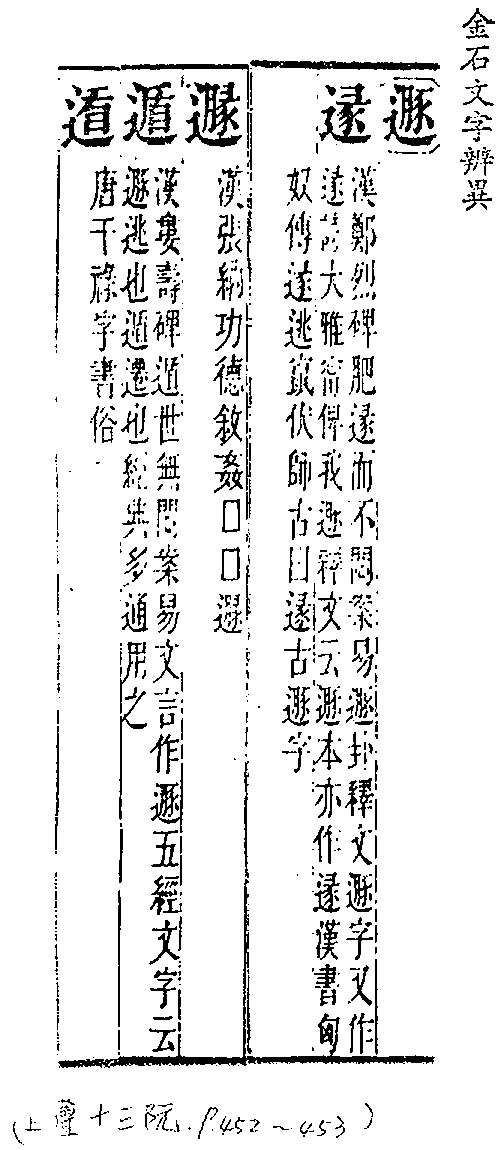 金石文字辨異
遯
遂
漢鄭烈碑肥遂而不悶案易遯卦釋文遯字又作
遂詩大雅甯俾我遯釋文云遯本亦作遂漢書匈
奴傳遂逃竄伏師古曰遂古遯字
遯
漢張納功德敘姦□□遯
遁
漢婁壽碑遁世無悶案易文言作遯五經文字云
遯逃也遁遷也經典多通用之
遁
唐干祿字書俗
(上 十三阮、P.452~453)